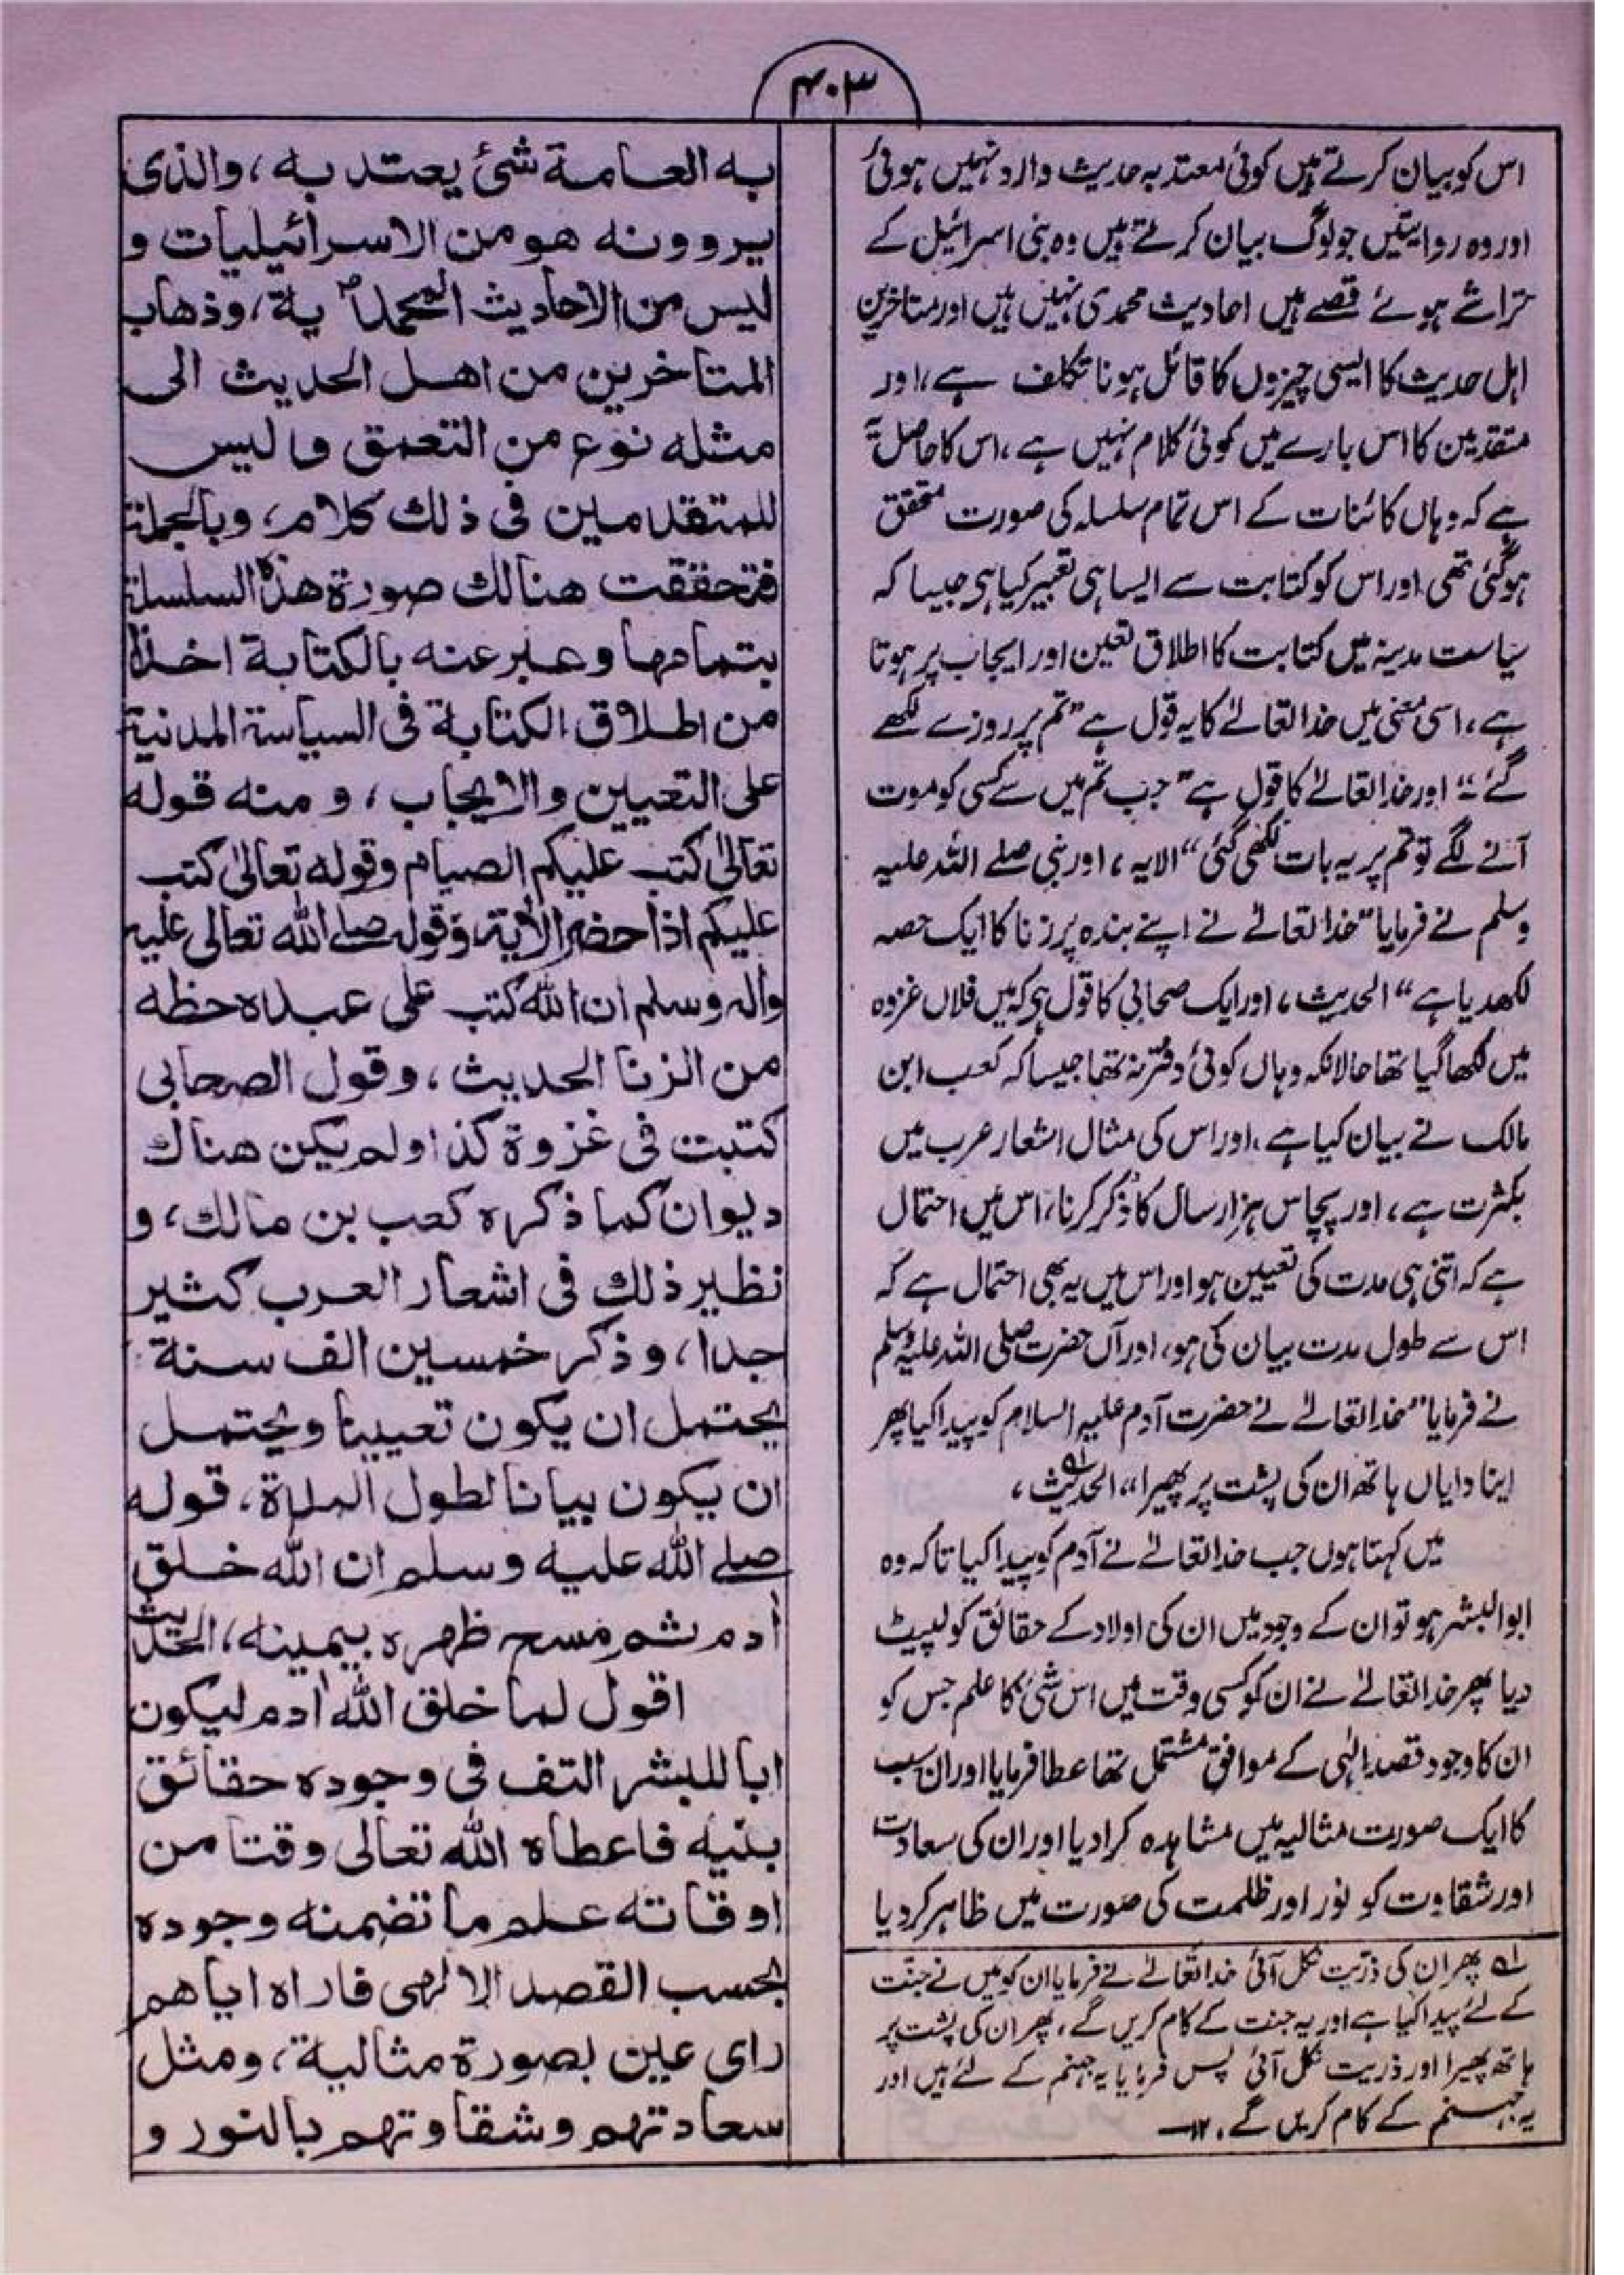 ۴۰۳
اس کو بیان کرتے ہیں کوئی معتد بہ حدیث وارد نہیں ہوئی
اور وہ روایتیں جو لوگ بیان کرتے ہیں وہ بنی اسرائیل کے
تراشے ہوئے قصے ہیں احادیث محمدی نہیں ہیں اور متاخرین
اہل حدیث کا ایسی چیزوں کا قائل ہونا تکلف ہے، اور
متقدمین کا اس بارے میں کوئی کلام نہیں ہے، اس کا حاصل یہ
ہے کہ وہاں کائنات کے اس تمام سلسلہ کی صورت متحقق
ہوگئی تھی اور اس کو کتابت سے ایسا ہی تعبیر کیا ہی جیسا کہ
سیاست مدینہ میں کتابت کا اطلاق تعین اور ایجاب پر ہوتا
ہے، اسی معنی میں خدا تعالےٰ کا یہ قول ہے "تم پر روزے لکھے
گئے" اور خدا تعالےٰ کا قول ہے "جب تم میں سے کسی کو موت
آنے لگے تو تم پر یہ بات لکھی گئی" الایہ، اور نبی صلے اللہ علیہ
وسلم نے فرمایا "خدا تعالےٰ نے اپنے بندہ پر زنا کا ایک حصہ
لکھدیا ہے" الحدیث، اور ایک صحابی کا قول ہی کہ میں فلاں غزوہ
میں لکھا گیا تھا حالانکہ وہاں کوئی دفتر نہ تھا جیسا کہ کعب ابن
مالک نے بیان کیا ہے، اور اس کی مثال اشعار عرب میں
بکثرت ہے، اور پچاس ہزار سال کا ذکر کرنا، اس میں احتمال
ہے کہ اتنی ہی مدت کی تعیین ہو اور اس میں یہ بھی احتمال ہے کہ
اس سے طول مدت بیان کی ہو، اور آں حضرت صلی اللہ علیہ وسلم
نے فرمایا "خدا تعالےٰ نے حضرت آدم علیہ السلام کو پیدا کیا پھر
اپنا دایاں ہاتھ ان کی پشت پر پھیرا" الحدیث ۱ھ،
میں کہتا ہوں جب خدا تعالےٰ نے آدم کو پیدا کیا تاکہ وہ
ابو البشر ہو تو ان کے وجود میں ان کی اولاد کے حقائق کو لپیٹ
دیا پھر خدا تعالےٰ نے ان کو کسی وقت میں اس شئ کا علم جس کو
ان کا وجود قصد الٰہی کے موافق مشتمل تھا عطا فرمایا اور ان سب
کا ایک صورت مثالیہ میں مشاہدہ کرا دیا اور ان کی سعادت
اور شقاوت کو نور اور ظلمت کی صورت میں ظاہر کر دیا
۱ھ پھر ان کی ذریت نکل آئی خدا تعالےٰ نے فرمایا ان کو میں نے جنت
کے لئے پیدا کیا ہے اور یہ جنت کے کام کریں گے، پھر ان کی پشت پر
ہاتھ پھیرا اور ذریت نکل آئی پس فرمایا یہ جہنم کے لئے ہیں اور
یہ جہنم کے کام کریں گے، ۱۲
به العامة شئ يعتد به، والذى
يروونه هو من الاسرائيليات و
ليس من الاحاديث المحمدية، وذهاب
المتاخرين من اهل الحديث الى
مثله نوع من التعمق وليس
للمتقدمين فى ذلك كلام، وبالجملة
فتحققت هنالك صورة هذه السلسلة
بتمامها وعبر عنه بالكتابة اخذا
من اطلاق الكتابة فى السياسة المدنية
على التعيين والايجاب، ومنه قوله
تعالىٰ كتب عليكم الصيام وقوله تعالىٰ كتب
عليكم اذا حضر الأية، وقوله صلے الله تعالى عليه
واله وسلم ان الله كتب على عبده حظه
من الزنا الحديث، وقول الصحابى
كتبت فى غزوة كذا ولم يكن هناك
ديوان كما ذكره كعب بن مالك، و
نظير ذلك فى اشعار العرب كثير
جدا، وذكر خمسين الف سنة
يحتمل ان يكون تعيينا ويحتمل
ان يكون بيانا لطول المدة، قوله
صلے الله عليه وسلم ان الله خلق
أدم ثم مسح ظهره بيمينه، الحديث
اقول لما خلق الله أدم ليكون
ابا للبشر التف فى وجوده حقائق
بنيه فاعطاه الله تعالى وقتا من
اوقاته علم ما تضمنه وجوده
بحسب القصد الالهى فاراه اياهم
راى عين بصورة مثالية، ومثل
سعادتهم وشقاوتهم بالنور و